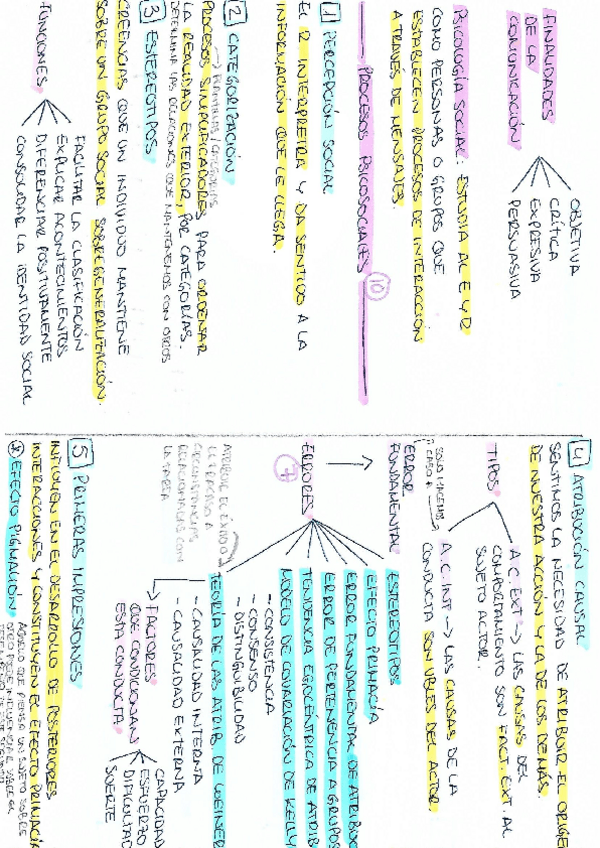 FINALIDADES
DE LA
COMUNICACIÓN
OBJETIVA
CRÍTICA
EXPRESIVA
PERSUASIVA
PSICOLOGÍA SOCIAL: ESTUDIA AL E Y R
COMO PERSONAS O GRUPOS QUE
ESTABLECEN PROCESOS DE INTERACCIÓN
A TRAVÉS DE MENSAJES.
PROCESOS PSICOSOCIALES 10
1 PERCEPCIÓN SOCIAL
EL R INTERPRETA Y DA SENTIDO A LA
INFORMACIÓN QUE LE LLEGA.
2 CATEGORIZACIÓN
PLANTILLAS/CATEGORÍAS
PROCESOS SIMPLIFICADORES PARA ORDENAR
LA REALIDAD EXTERIOR, POR CATEGORÍAS.
DETERMINA LAS RELACIONES QUE MANTENEMOS CON OTROS
3 ESTEREOTIPOS
CREENCIAS QUE UN INDIVIDUO MANTIENE
SOBRE UN GRUPO SOCIAL SOBREGENERALIZACIÓN.
FUNCIONES
FACILITAR LA CLASIFICACIÓN
EXPLICAR ACONTECIMIENTOS
DIFERENCIAR POSITIVAMENTE
CONSOLIDAR LA IDENTIDAD SOCIAL
4 ATRIBUCIÓN CAUSAL
SENTIMOS LA NECESIDAD DE ATRIBUIR EL ORIGEN
DE NUESTRA ACCIÓN Y LA DE LOS DEMÁS.
TIPOS
A.C. EXT → LAS CAUSAS DEL
COMPORTAMIENTO SON FACT. EXT. AL
SUJETO ACTOR.
A.C. INT → LAS CAUSAS DE LA
CONDUCTA SON UBLES DEL ACTOR.
SOLO HACEMOS
CASO A
ERROR
FUNDAMENTAL
ERRORES
7
ESTEREOTIPOS
EFECTO PRIMACÍA
ERROR FUNDAMENTAL DE ATRIBUC
ERROR DE PERTENENCIA A GRUPOS
TENDENCIA EGOCÉNTRICA DE ATRIB
MODELO DE COVARIACIÓN DE KELLY
- CONSISTENCIA
- CONSENSO
- DISTINGUIBILIDAD
TEORÍA DE LAS ATRIB. DE WEINER
- CAUSALIDAD INTERNA
- CAUSALIDAD EXTERNA
ATRIBUIR EL ÉXITO O
EL FRACASO A
CIRCUNSTANCIAS
RELACIONADAS CON
LA TAREA
FACTORES
QUE CONDICIONAN
ESTA CONDUCTA
CAPACIDAD
ESFUERZO
DIFICULTAD
SUERTE
5 PRIMERAS IMPRESIONES
INFLUYEN EN EL DESARROLLO DE POSTERIORES
INTERACCIONES Y CONSTITUYEN EL EFECTO PRIMACÍA
* EFECTO PIGMALIÓN
AQUELLO QUE PIENSA UN SUJETO SOBRE
OTRO PUEDE INFLUENCIAR